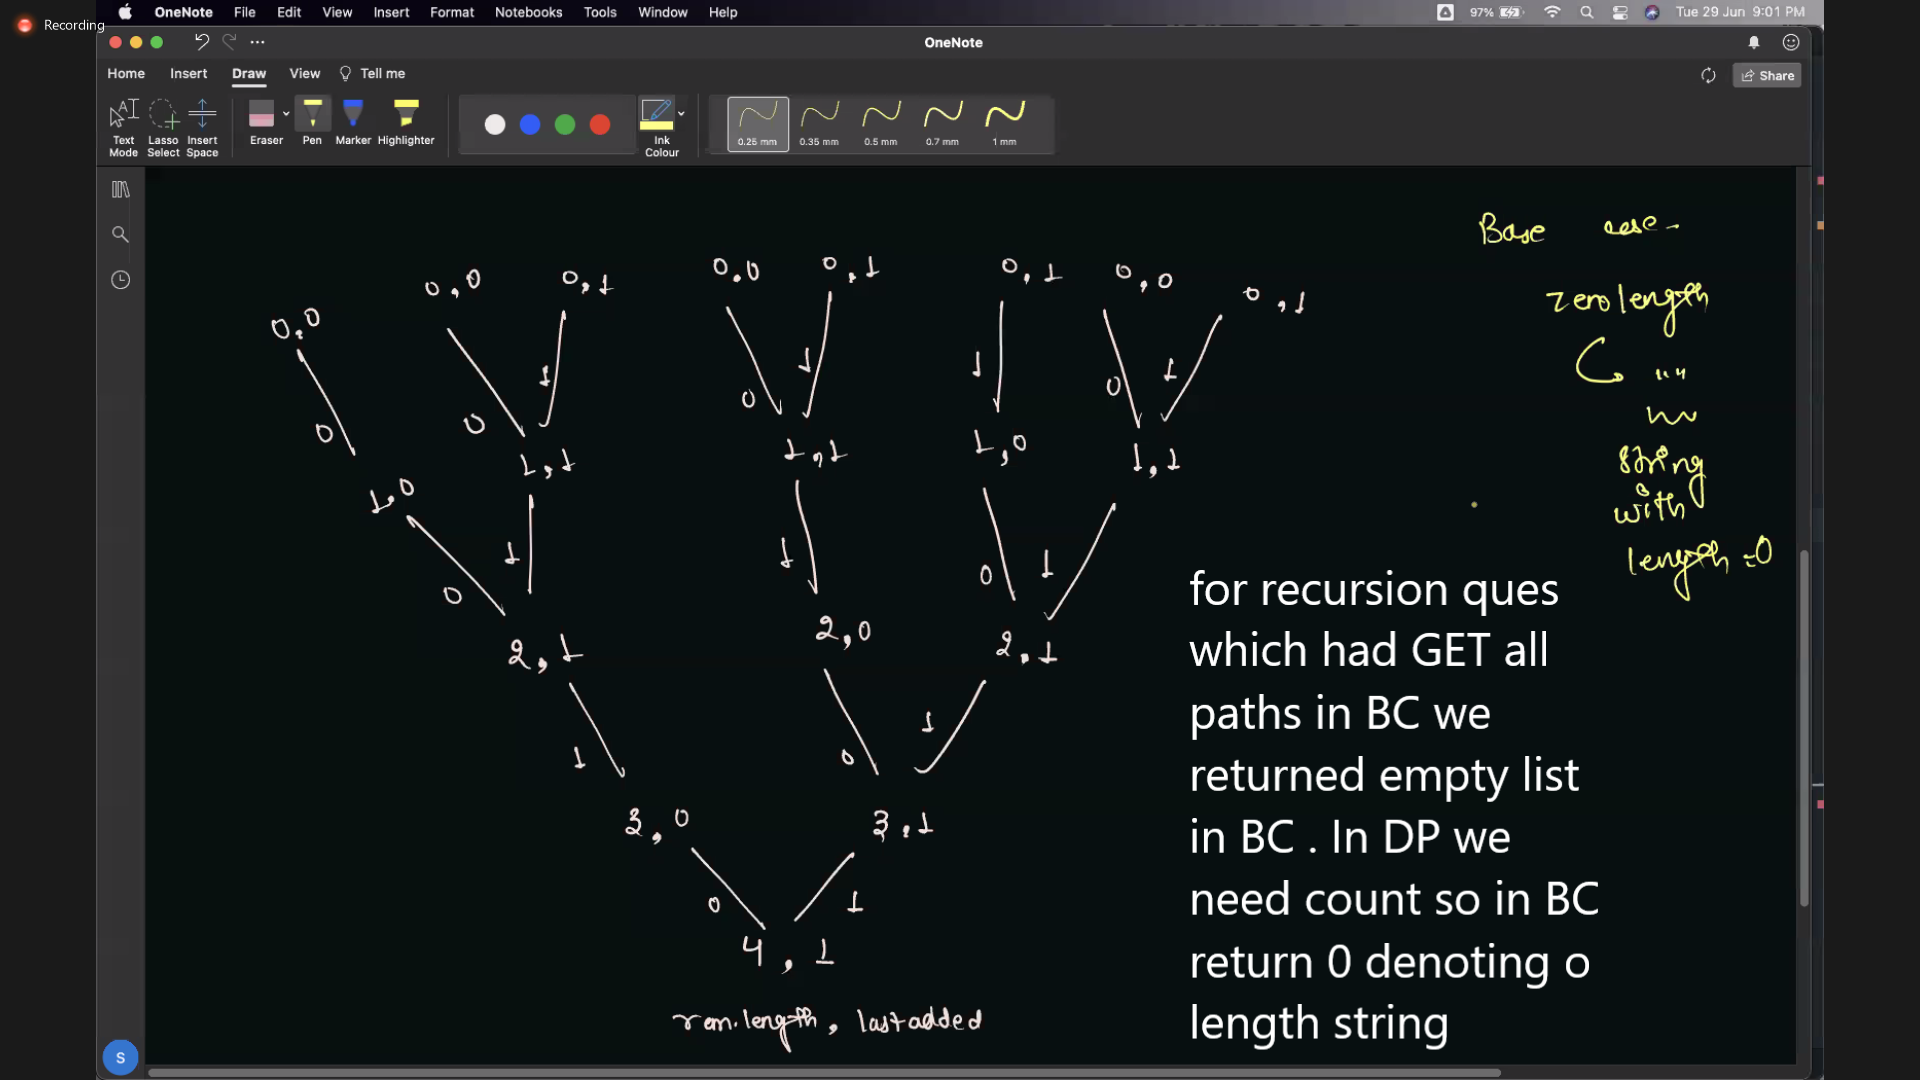 Recording
OneNote File Edit View Insert Format Notebooks Tools Window Help
97% Tue 29 Jun 9:01 PM
OneNote
Home Insert Draw View Tell me
Share
Text Mode
Lasso Select
Insert Space
Eraser
Pen
Marker
Highlighter
Ink Colour
0.25 mm 0.35 mm 0.5 mm 0.7 mm 1 mm
Base case -
zero length
" "
string
with
length = 0
0,0 0,0 0,1 0,0 0,1 0,1 0,0 0,1
0 0 1 0 1 1 0 1
1,0 1,1 1,1 1,0 1,1
0 1 1 0 1
2,1 2,0 2,1
1 0 1
3,0 3,1
0 1
4,1
rem. length, last added
for recursion ques
which had GET all
paths in BC we
returned empty list
in BC . In DP we
need count so in BC
return 0 denoting o
length string
S